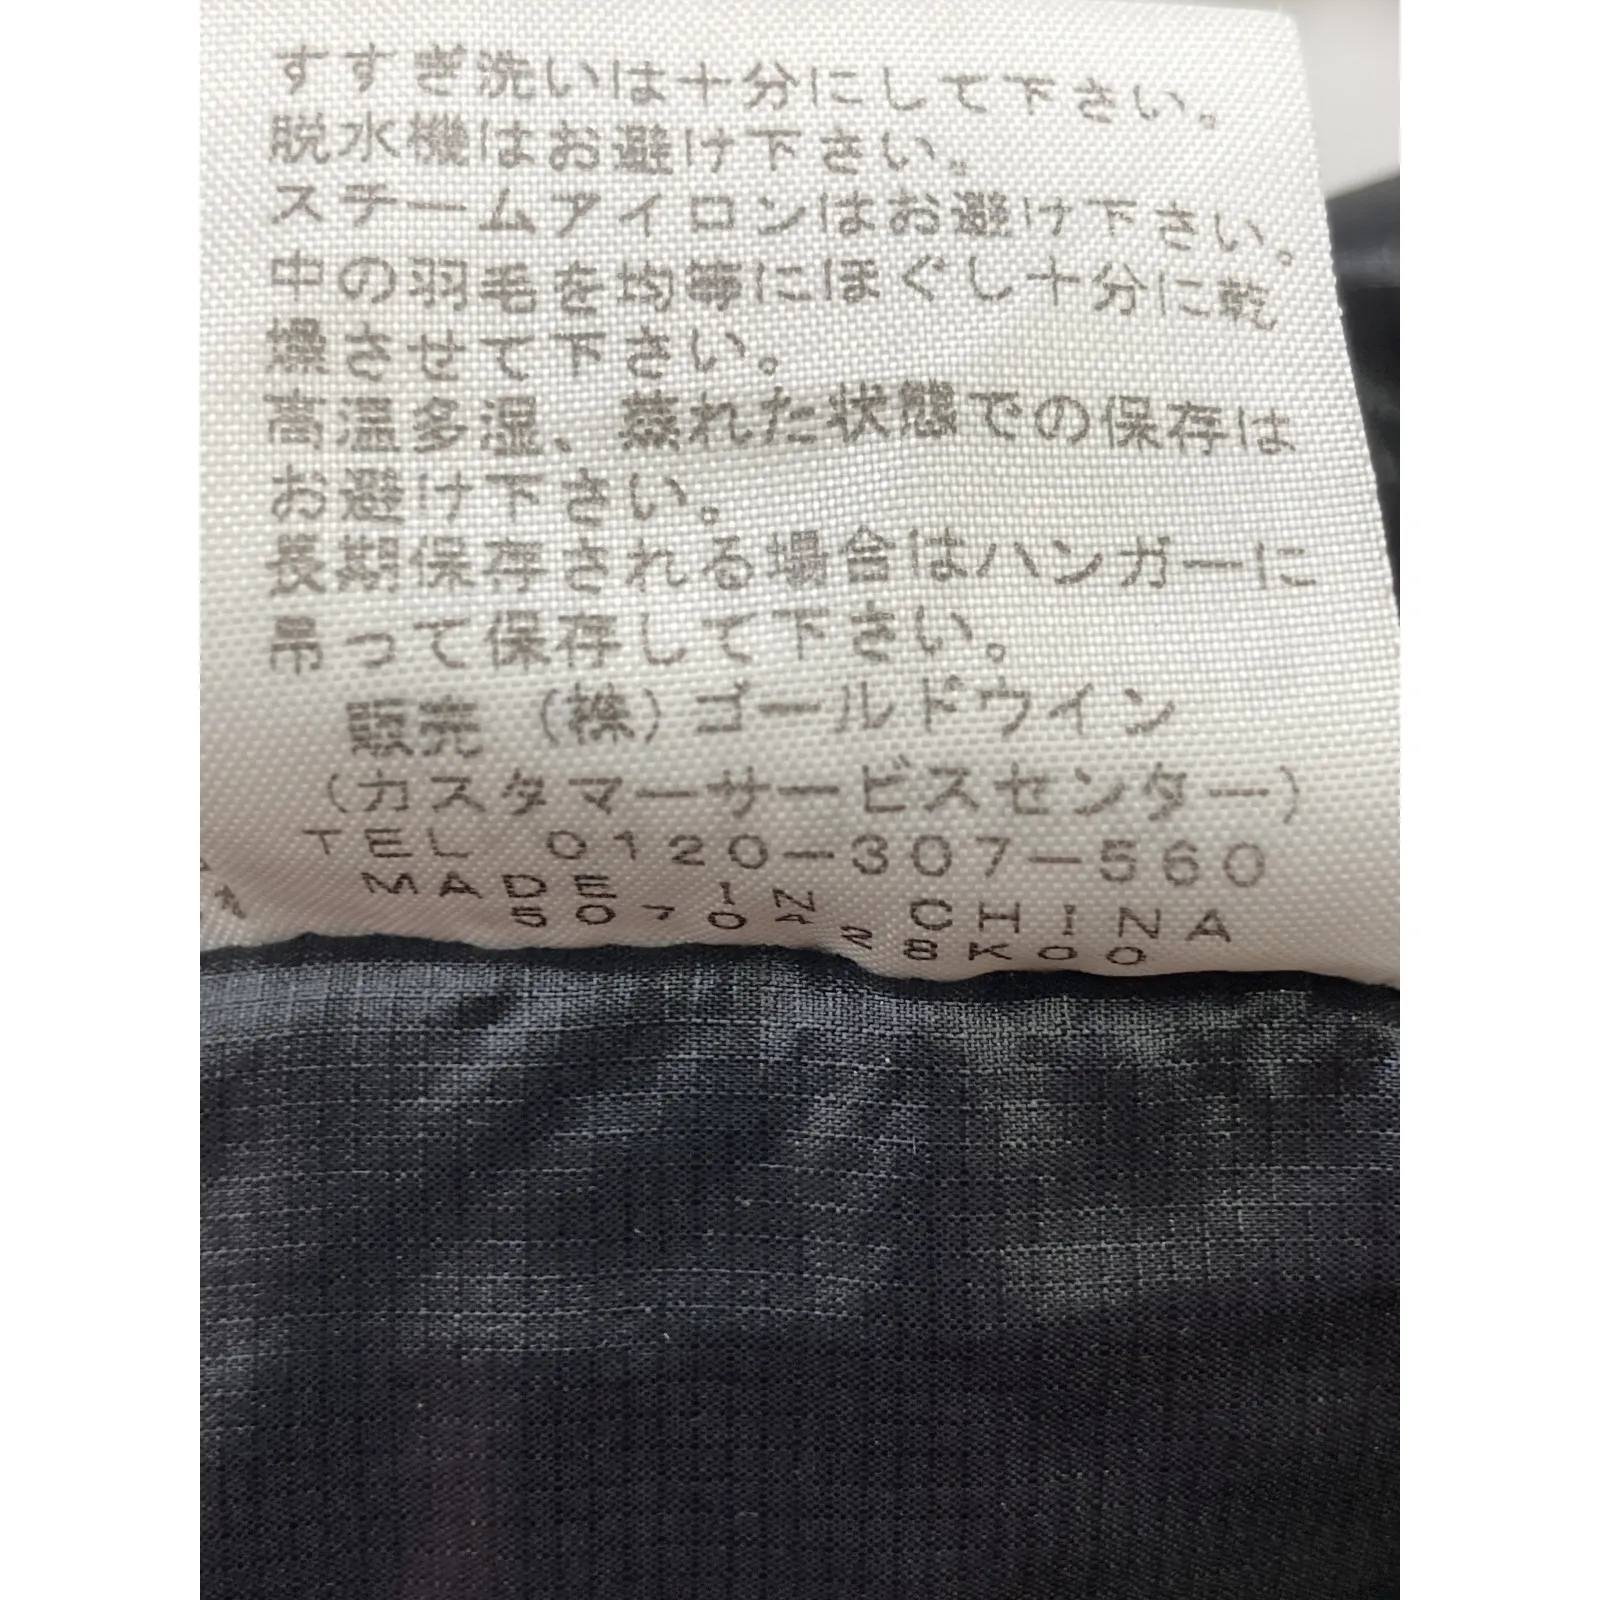 すすぎ洗いは十分にして下さい。
脱水機はお避け下さい。
スチームアイロンはお避け下さい。
中の羽毛を均等にほぐし十分に乾
燥させて下さい。
高温多湿、蒸れた状態での保存は
お避け下さい。
長期保存される場合はハンガーに
吊って保存して下さい。
販売 (株)ゴールドウイン
(カスタマーサービスセンター)
TEL 0120-307-560
MADE IN CHINA
5070A28K00